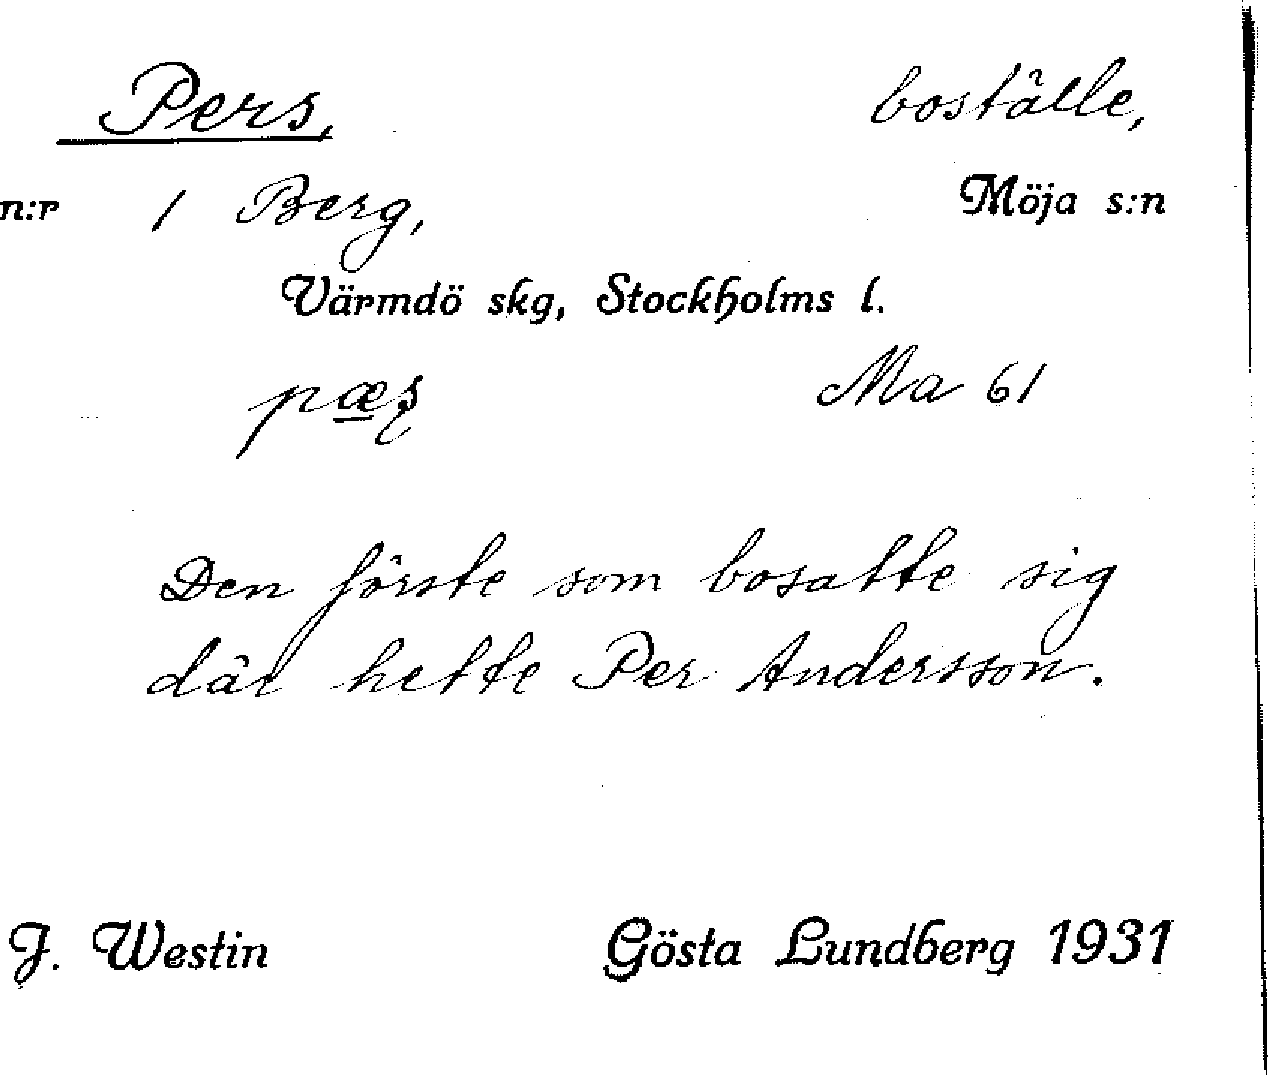 Pers, boställe,
n:r 1 Berg, Möja s:n
Värmdö skg, Stockholms l.
pæʂ Ma 61
Den förste som bosatte sig
där hette Per Andersson.
J. Westin Gösta Lundberg 1931